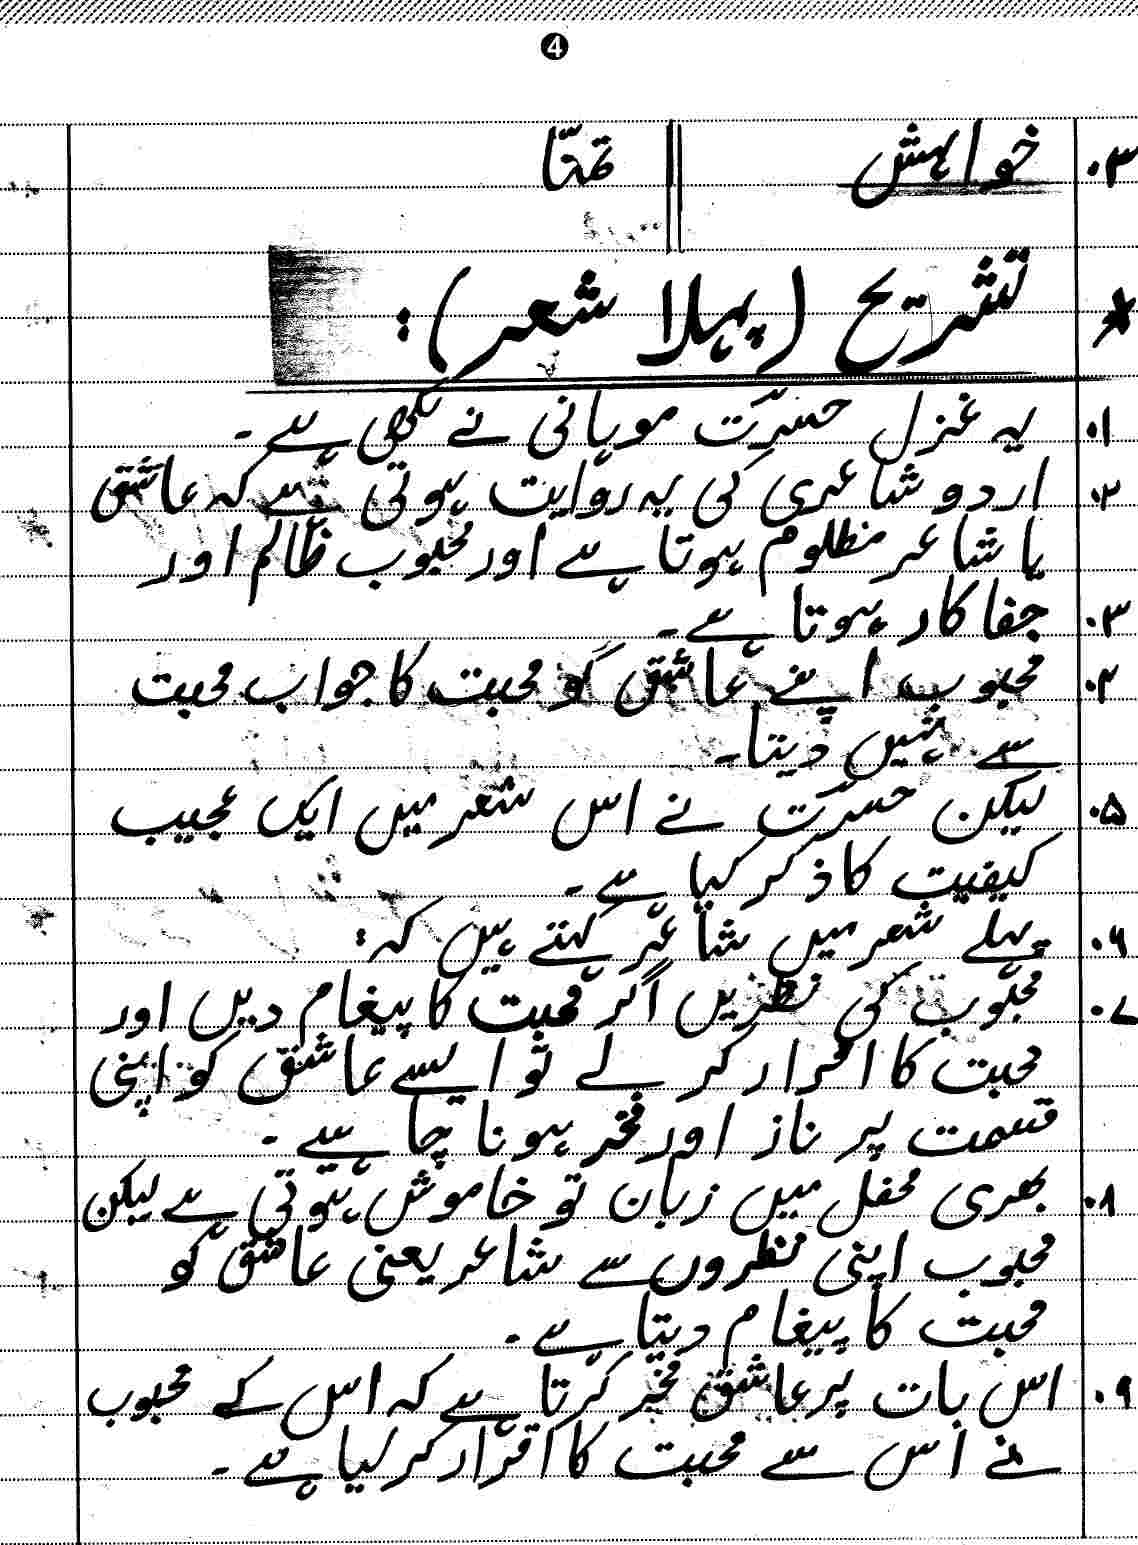 4
۳. خواہش تمنّا
* تشریح (پہلا شعر):
۱. یہ غزل حسرؔت موہانی نے لکھی ہے۔
۲. اردو شاعری کی یہ روایت ہوتی ہے کہ عاشق
یا شاعر مظلوم ہوتا ہے اور محبوب ظالم اور
۳. جفاکار ہوتا ہے۔
۴. محبوب اپنے عاشق کو محبت کا جواب محبت
سے نہیں دیتا۔
۵. لیکن حسرؔت نے اس شعر میں ایک عجیب
کیفیت کا ذکر کیا ہے۔
۶. پہلے شعر میں شاعر کہتے ہیں کہ:
۷. محبوب کی نظریں اگر محبت کا پیغام دیں اور
محبت کا اقرار کر لے تو ایسے عاشق کو اپنی
قسمت پر ناز اور فخر ہونا چاہیے۔
۸. بھری محفل میں زبان تو خاموش ہوتی ہے لیکن
محبوب اپنی نظروں سے شاعر یعنی عاشق کو
محبت کا پیغام دیتا ہے۔
۹. اس بات پر عاشق فخر کرتا ہے کہ اس کے محبوب
نے اس سے محبت کا اقرار کر لیا ہے۔